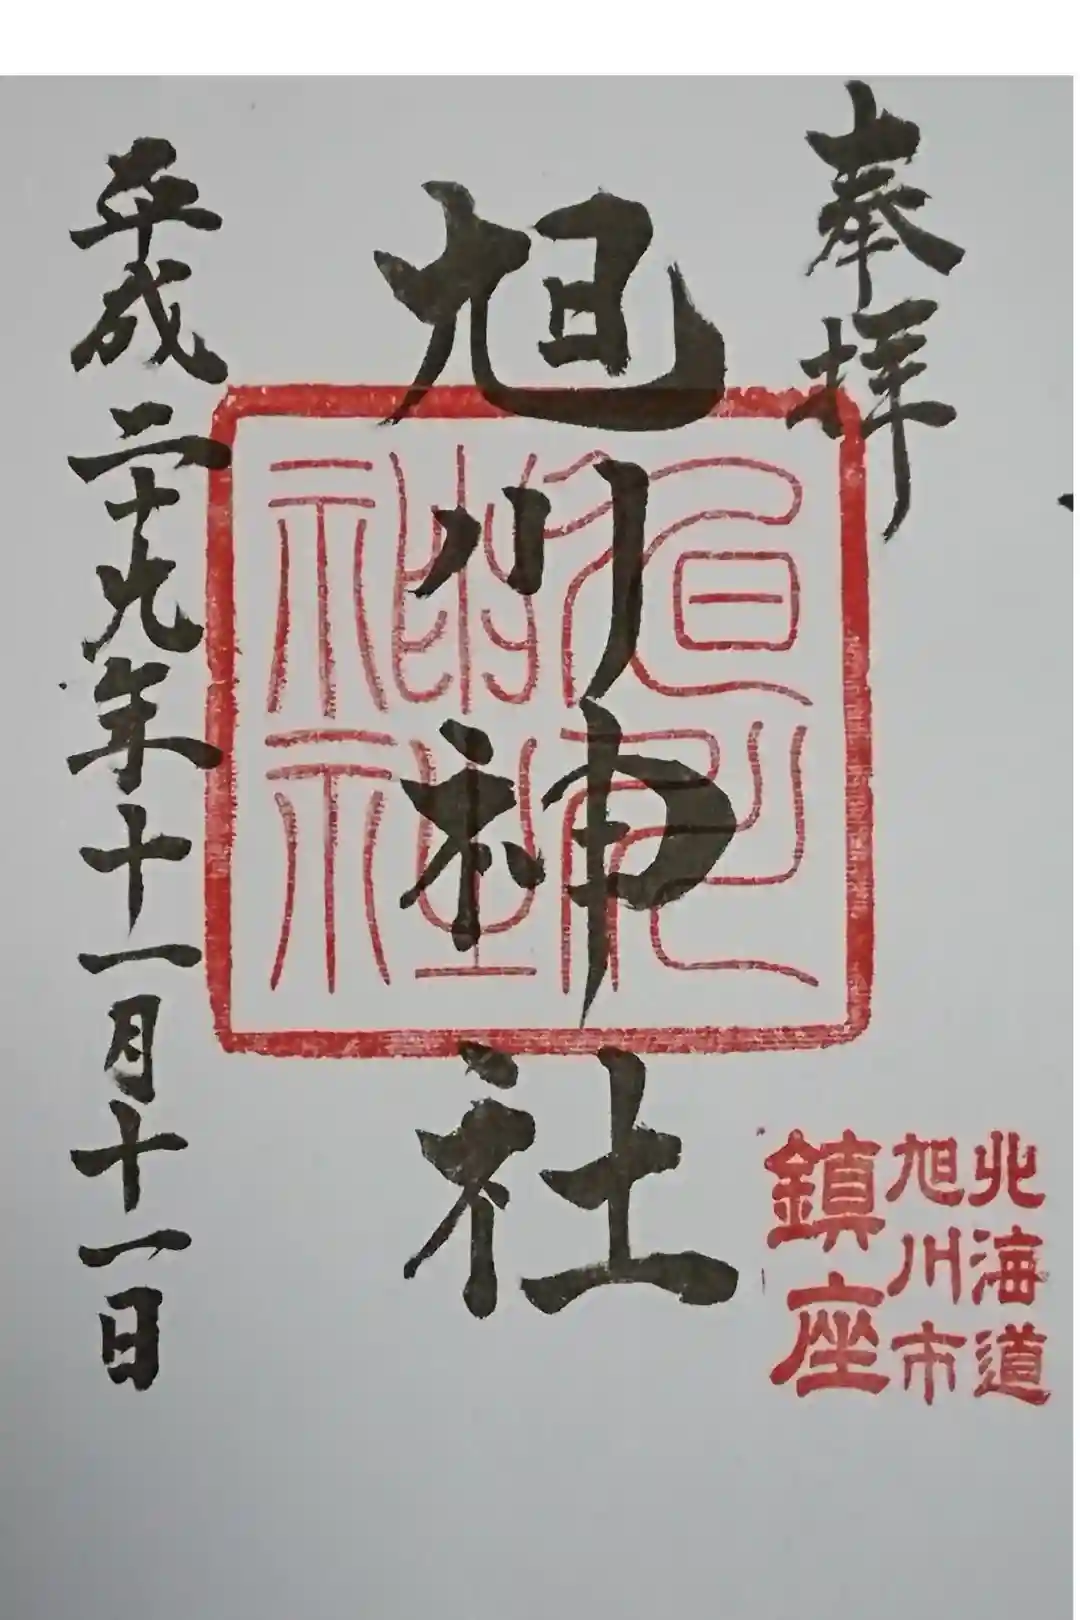 奉拝
旭川神社
平成二十九年十一月十一日
北海道
旭川市
鎮座